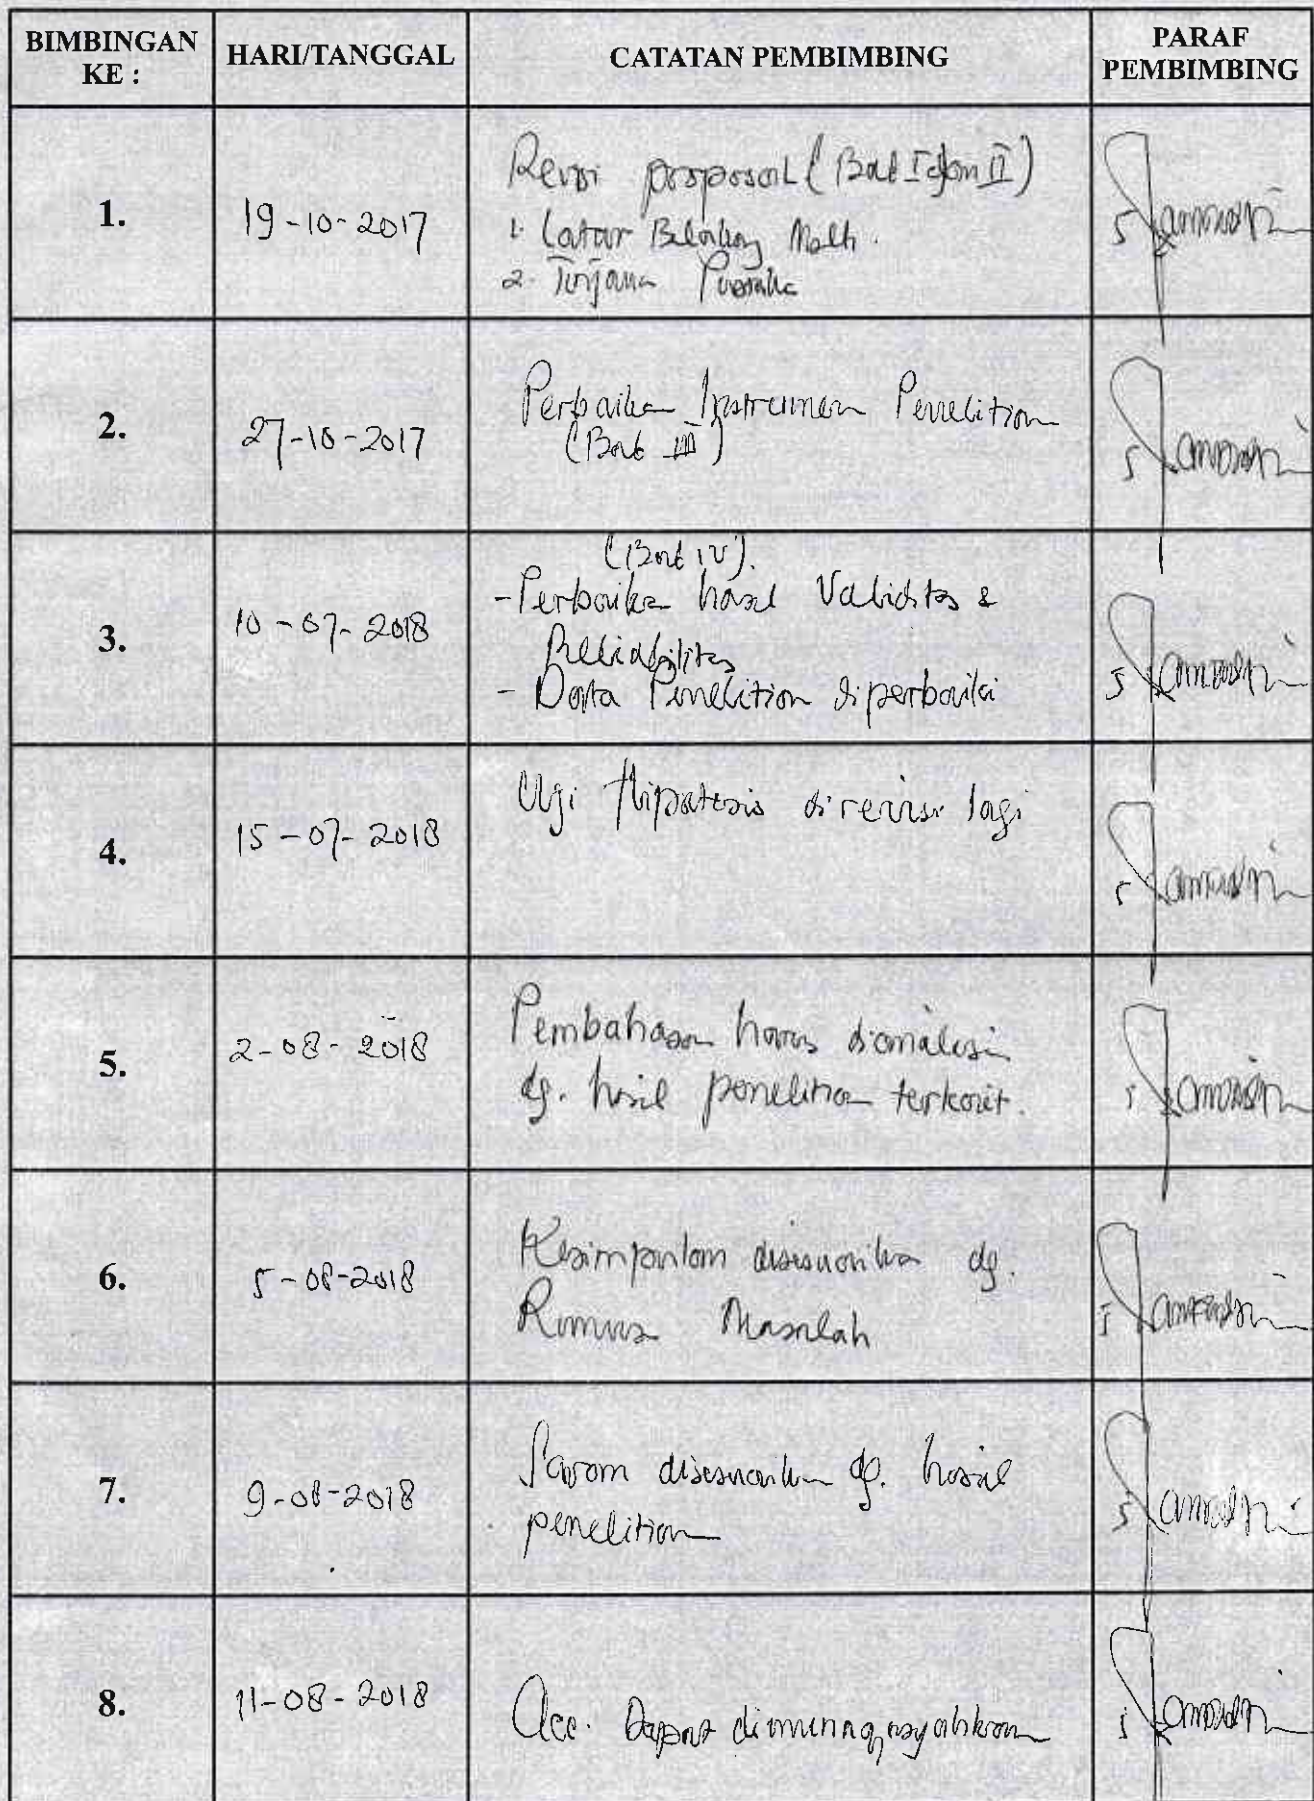 BIMBINGAN KE : HARI/TANGGAL CATATAN PEMBIMBING PARAF PEMBIMBING
1. 19-10-2017 Revisi proposal (Bab I dan II)
1. Latar Belakang Mslh.
2. Tinjauan Pustaka
2. 27-10-2017 Perbaikan Instrumen Penelitian
(Bab III)
3. 10-07-2018 (Bab IV).
- Perbaikan hasil Validitas &
Reliabilitas
- Data Penelitian diperbaiki
4. 15-07-2018 Uji Hipotesis direvisi lagi
5. 2-08-2018 Pembahasan harus dianalisis
dg. hasil penelitian terkait.
6. 5-08-2018 Kesimpulan disesuaikan dg.
Rumusan Masalah
7. 9-08-2018 Saran disesuaikan dg. hasil
penelitian
8. 11-08-2018 Acc. Dapat dimunaqasyahkan